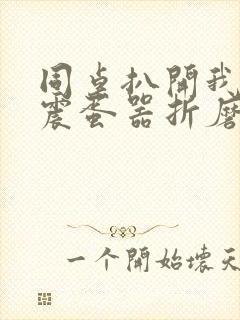 同桌扒開我
震蛋器折磨
一个開始壞天